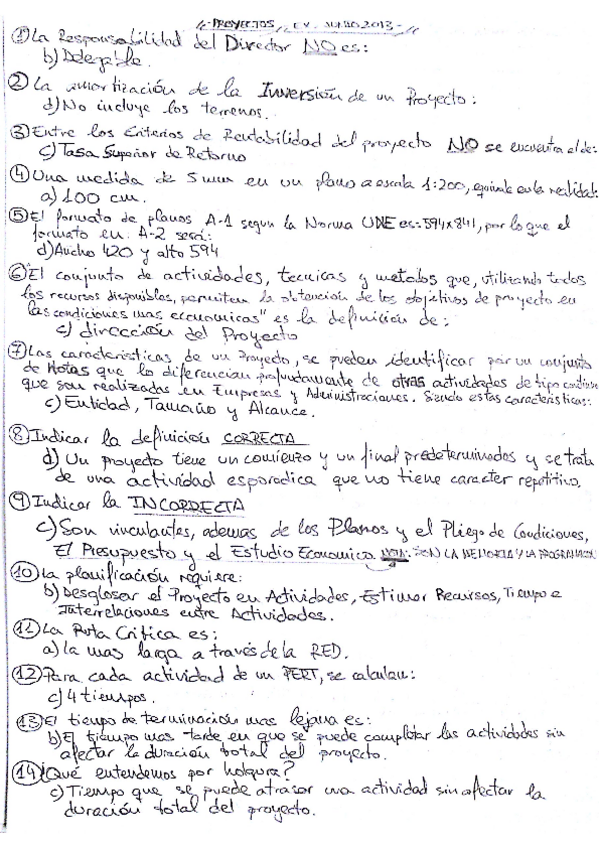 -PROYECTOS, EV. JUNIO 2013-
① La Responsabilidad del Director NO es:
b) Delegable.
② La amortización de la Inversión de un Proyecto:
d) No incluye los terrenos.
③ Entre los Criterios de Rentabilidad del proyecto NO se encuentra el de:
c) Tasa Superior de Retorno
④ Una medida de 5 mm en un plano a escala 1:200, equivale en la realidad:
a) 100 cm.
⑤ El formato de planos A-1 segun la Norma UNE es: 594x841, por lo que el
formato en A-2 será:
d) Ancho 420 y alto 594
⑥ "El conjunto de actividades, tecnicas y metodos que, utilizando todos
los recursos disponibles, permiten la obtención de los objetivos de proyecto en
las condiciones mas economicas" es la definición de:
c) dirección del Proyecto
⑦ Las caracteristicas de un Proyecto, se pueden identificar por un conjunto
de Notas que lo diferencian profundamente de otras actividades de tipo continuo
que son realizadas en Empresas y Administraciones. Siendo estas caracteristicas:
c) Entidad, Tamaño y Alcance.
⑧ Indicar la definición CORRECTA
d) Un proyecto tiene un comienzo y un final predeterminados y se trata
de una actividad esporadica que no tiene caracter repetitivo.
⑨ Indicar la INCORRECTA
c) Son vinculantes, ademas de los Planos y el Pliego de Condiciones,
El Presupuesto y el Estudio Economico. NOTA: SON LA MEMORIA Y LA PROGRAMACION
⑩ La planificación requiere:
b) Desglosar el Proyecto en Actividades, Estimar Recursos, Tiempo e
Interrelaciones entre Actividades.
⑪ La Ruta Critica es:
a) la mas larga a través de la RED.
⑫ Para cada actividad de un PERT, se calculan:
c) 4 tiempos.
⑬ El tiempo de terminación mas lejana es:
b) El tiempo mas tarde en que se puede completar las actividades sin
afectar la duración total del proyecto.
⑭ ¿Qué entendemos por holgura?
c) Tiempo que se puede atrasar una actividad sin afectar la
duración total del proyecto.